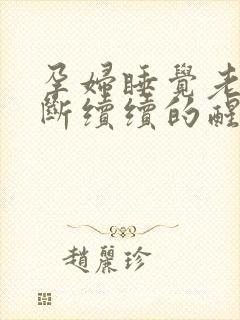 孕婦睡覺老
斷續續的醒
趙麗珍